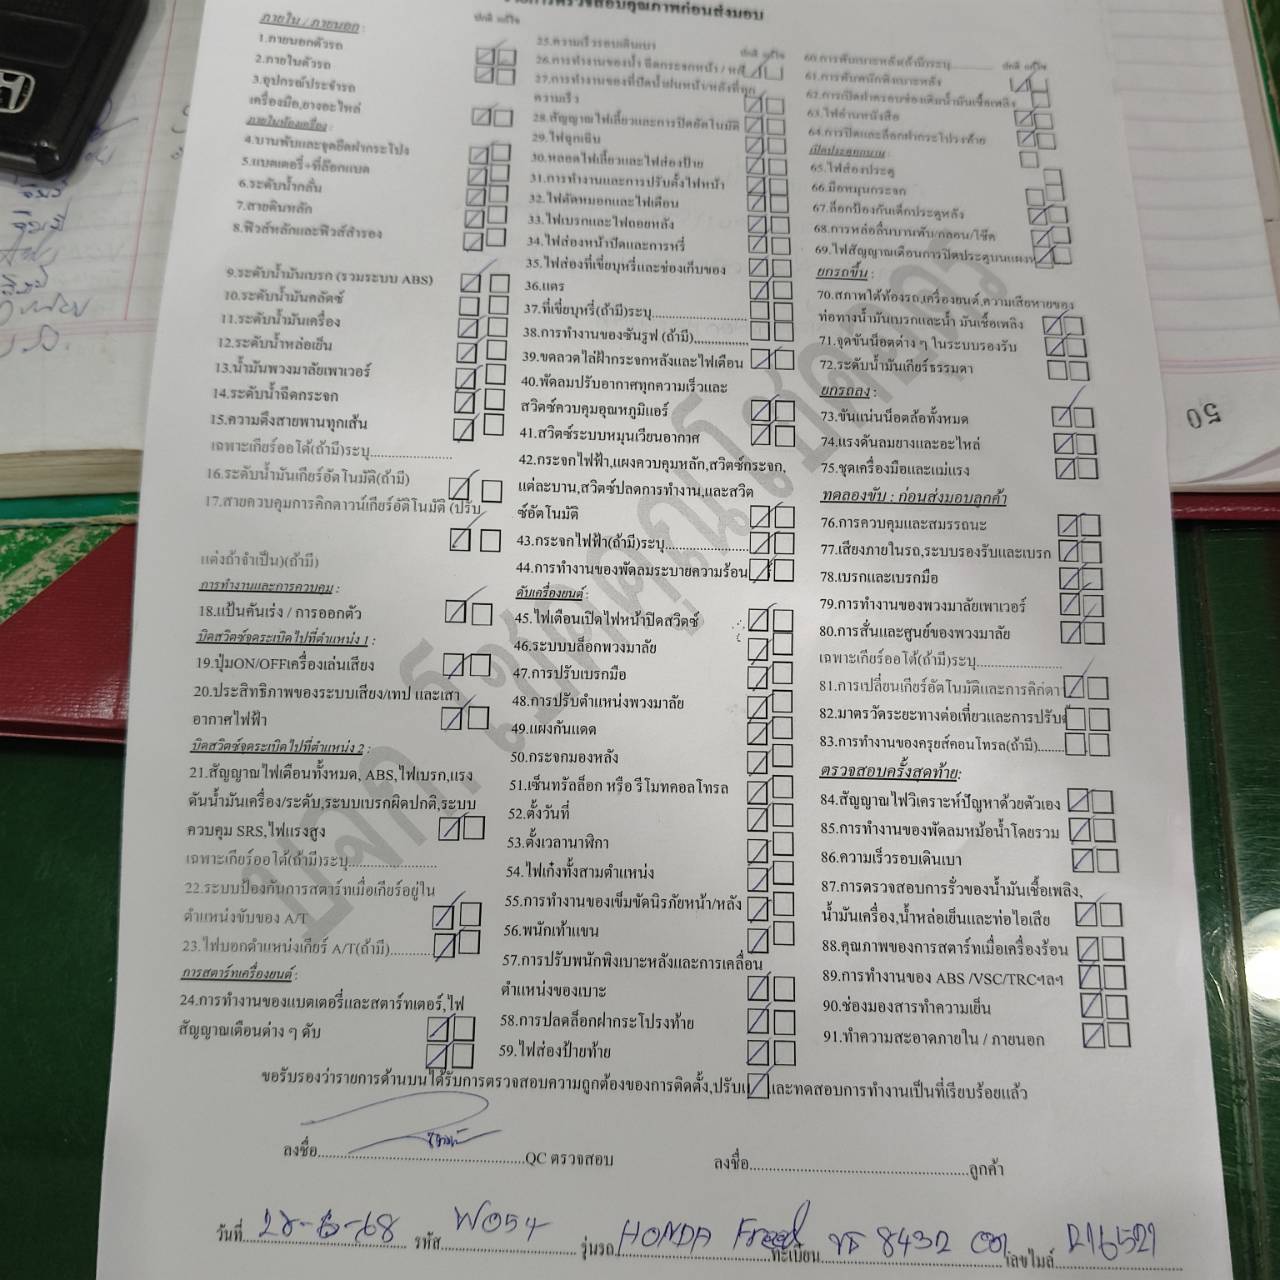 รายการตรวจสอบคุณภาพก่อนส่งมอบ
ภายใน / ภายนอก :
ปกติ แก้ไข
1.ภายนอกตัวรถ
2.ภายในตัวรถ
3.อุปกรณ์ประจำรถ
เครื่องมือ,ยางอะไหล่
ภายในห้องเครื่อง :
4.บานพับและจุดยึดฝากระโปง
5.แบตเตอรี่+ที่ล๊อกแบต
6.ระดับน้ำกลั่น
7.สายดินหลัก
8.ฟิวส์หลักและฟิวส์สำรอง
9.ระดับน้ำมันเบรก (รวมระบบ ABS)
10.ระดับน้ำมันคลัตซ์
11.ระดับน้ำมันเครื่อง
12.ระดับน้ำหล่อเย็น
13.น้ำมันพวงมาลัยเพาเวอร์
14.ระดับน้ำฉีดกระจก
15.ความตึงสายพานทุกเส้น
เฉพาะเกียร์ออโต้(ถ้ามี)ระบุ......................
16.ระดับน้ำมันเกียร์อัตโนมัติ(ถ้ามี)
17.สายควบคุมการคิกดาวน์เกียร์อัตโนมัติ (ปรับ
แต่งถ้าจำเป็น)(ถ้ามี)
การทำงานและการควบคุม :
18.แป้นคันเร่ง / การออกตัว
บิดสวิตซ์จุดระเบิดไปที่ตำแหน่ง 1 :
19.ปุ่มON/OFFเครื่องเล่นเสียง
20.ประสิทธิภาพของระบบเสียง/เทป และเสา
อากาศไฟฟ้า
บิดสวิตซ์จุดระเบิดไปที่ตำแหน่ง 2 :
21.สัญญาณไฟเตือนทั้งหมด, ABS,ไฟเบรก,แรง
ดันน้ำมันเครื่อง/ระดับ,ระบบเบรกผิดปกติ,ระบบ
ควบคุม SRS,ไฟแรงสูง
เฉพาะเกียร์ออโต้(ถ้ามี)ระบุ......................
22.ระบบป้องกันการสตาร์ทเมื่อเกียร์อยู่ใน
ตำแหน่งขับของ A/T
23.ไฟบอกตำแหน่งเกียร์ A/T(ถ้ามี)..........
การสตาร์ทเครื่องยนต์ :
24.การทำงานของแบตเตอรี่และสตาร์ทเตอร์,ไฟ
สัญญาณเตือนต่าง ๆ ดับ
ปกติ แก้ไข
25.ความเร็วรอบเดินเบา
26.การทำงานของน้ำ ฉีดกระจกหน้า / หลั
27.การทำงานของที่ปัดน้ำฝนหน้า/หลังที่ทุก
ความเร็ว
28.สัญญาณไฟเลี้ยวและการปิดอัตโนมัติ
29.ไฟฉุกเฉิน
30.หลอดไฟเลี้ยวและไฟส่องป้าย
31.การทำงานและการปรับตั้งไฟหน้า
32.ไฟตัดหมอกและไฟเตือน
33.ไฟเบรกและไฟถอยหลัง
34.ไฟส่องหน้าปัดและการหรี่
35.ไฟส่องที่เขี่ยบุหรี่และช่องเก็บของ
36.แตร
37.ที่เขี่ยบุหรี่(ถ้ามี)ระบุ......................
38.การทำงานของซันรูฟ (ถ้ามี)..............
39.ขดลวดไล่ฝ้ากระจกหลังและไฟเตือน
40.พัดลมปรับอากาศทุกความเร็วและ
สวิตซ์ควบคุมอุณหภูมิแอร์
41.สวิตซ์ระบบหมุนเวียนอากาศ
42.กระจกไฟฟ้า,แผงควบคุมหลัก,สวิตซ์กระจก,
แต่ละบาน,สวิตซ์ปลดการทำงาน,และสวิต
ซ์อัตโนมัติ
43.กระจกไฟฟ้า(ถ้ามี)ระบุ......................
44.การทำงานของพัดลมระบายความร้อน
ดับเครื่องยนต์ :
45.ไฟเตือนเปิดไฟหน้าปิดสวิตซ์
46.ระบบบล็อกพวงมาลัย
47.การปรับเบรกมือ
48.การปรับตำแหน่งพวงมาลัย
49.แผงกันแดด
50.กระจกมองหลัง
51.เซ็นทรัลล็อก หรือ รีโมทคอลโทรล
52.ตั้งวันที่
53.ตั้งเวลานาฬิกา
54.ไฟเก๋งทั้งสามตำแหน่ง
55.การทำงานของเข็มขัดนิรภัยหน้า/หลัง
56.พนักเท้าแขน
57.การปรับพนักพิงเบาะหลังและการเคลื่อน
ตำแหน่งของเบาะ
58.การปลดล็อกฝากระโปรงท้าย
59.ไฟส่องป้ายท้าย
ปกติ แก้ไข
60.การพับเบาะหลัง(ถ้ามี)ระบุ............
61.การพับพนักพิงเบาะหลัง
62.การเปิดฝาครอบช่องเติมน้ำมันเชื้อเพลิง
63.ไฟอ่านหนังสือ
64.การปิดและล็อกฝากระโปรงท้าย
เปิดประตูออกมา :
65.ไฟส่องประตู
66.มือหมุนกระจก
67.ล็อกป้องกันเด็กประตูหลัง
68.การหล่อลื่นบานพับ/กลอน/โช๊ค
69.ไฟสัญญาณเตือนการปิดประตูบนแผงห
ยกรถขึ้น :
70.สภาพใต้ท้องรถ,เครื่องยนต์,ความเสียหายของ
ท่อทางน้ำมันเบรกและน้ำ มันเชื้อเพลิง
71.จุดขันน็อตต่าง ๆ ในระบบรองรับ
72.ระดับน้ำมันเกียร์ธรรมดา
ยกรถลง :
73.ขันแน่นน็อตล้อทั้งหมด
74.แรงดันลมยางและอะไหล่
75.ชุดเครื่องมือและแม่แรง
ทดลองขับ : ก่อนส่งมอบลูกค้า
76.การควบคุมและสมรรถนะ
77.เสียงภายในรถ,ระบบรองรับและเบรก
78.เบรกและเบรกมือ
79.การทำงานของพวงมาลัยเพาเวอร์
80.การสั่นและศูนย์ของพวงมาลัย
เฉพาะเกียร์ออโต้(ถ้ามี)ระบุ......................
81.การเปลี่ยนเกียร์อัตโนมัติและการคิกดา
82.มาตรวัดระยะทางต่อเที่ยวและการปรับตั้
83.การทำงานของครุยส์คอนโทรล(ถ้ามี)........
ตรวจสอบครั้งสุดท้าย:
84.สัญญาณไฟวิเคราะห์ปัญหาด้วยตัวเอง
85.การทำงานของพัดลมหม้อน้ำโดยรวม
86.ความเร็วรอบเดินเบา
87.การตรวจสอบการรั่วของน้ำมันเชื้อเพลิง,
น้ำมันเครื่อง,น้ำหล่อเย็นและท่อไอเสีย
88.คุณภาพของการสตาร์ทเมื่อเครื่องร้อน
89.การทำงานของ ABS /VSC/TRCฯลฯ
90.ช่องมองสารทำความเย็น
91.ทำความสะอาดภายใน / ภายนอก
ขอรับรองว่ารายการด้านบนได้รับการตรวจสอบความถูกต้องของการติดตั้ง,ปรับแ และทดสอบการทำงานเป็นที่เรียบร้อยแล้ว
ลงชื่อ............QC ตรวจสอบ ลงชื่อ............ลูกค้า
วันที่ 28-6-68 รหัส W054 รุ่นรถ HONDA Freed ทะเบียน 8432 เลขไมล์ 216521
50